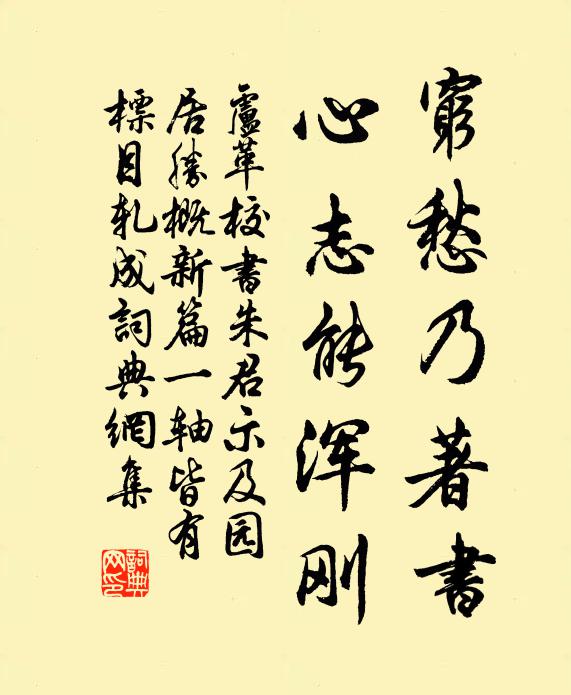 窮愁乃著書
心志能浑刚
盧革校書朱君示及园
居勝概新篇一轴皆有
標目軋成詞典網集
詞典網印